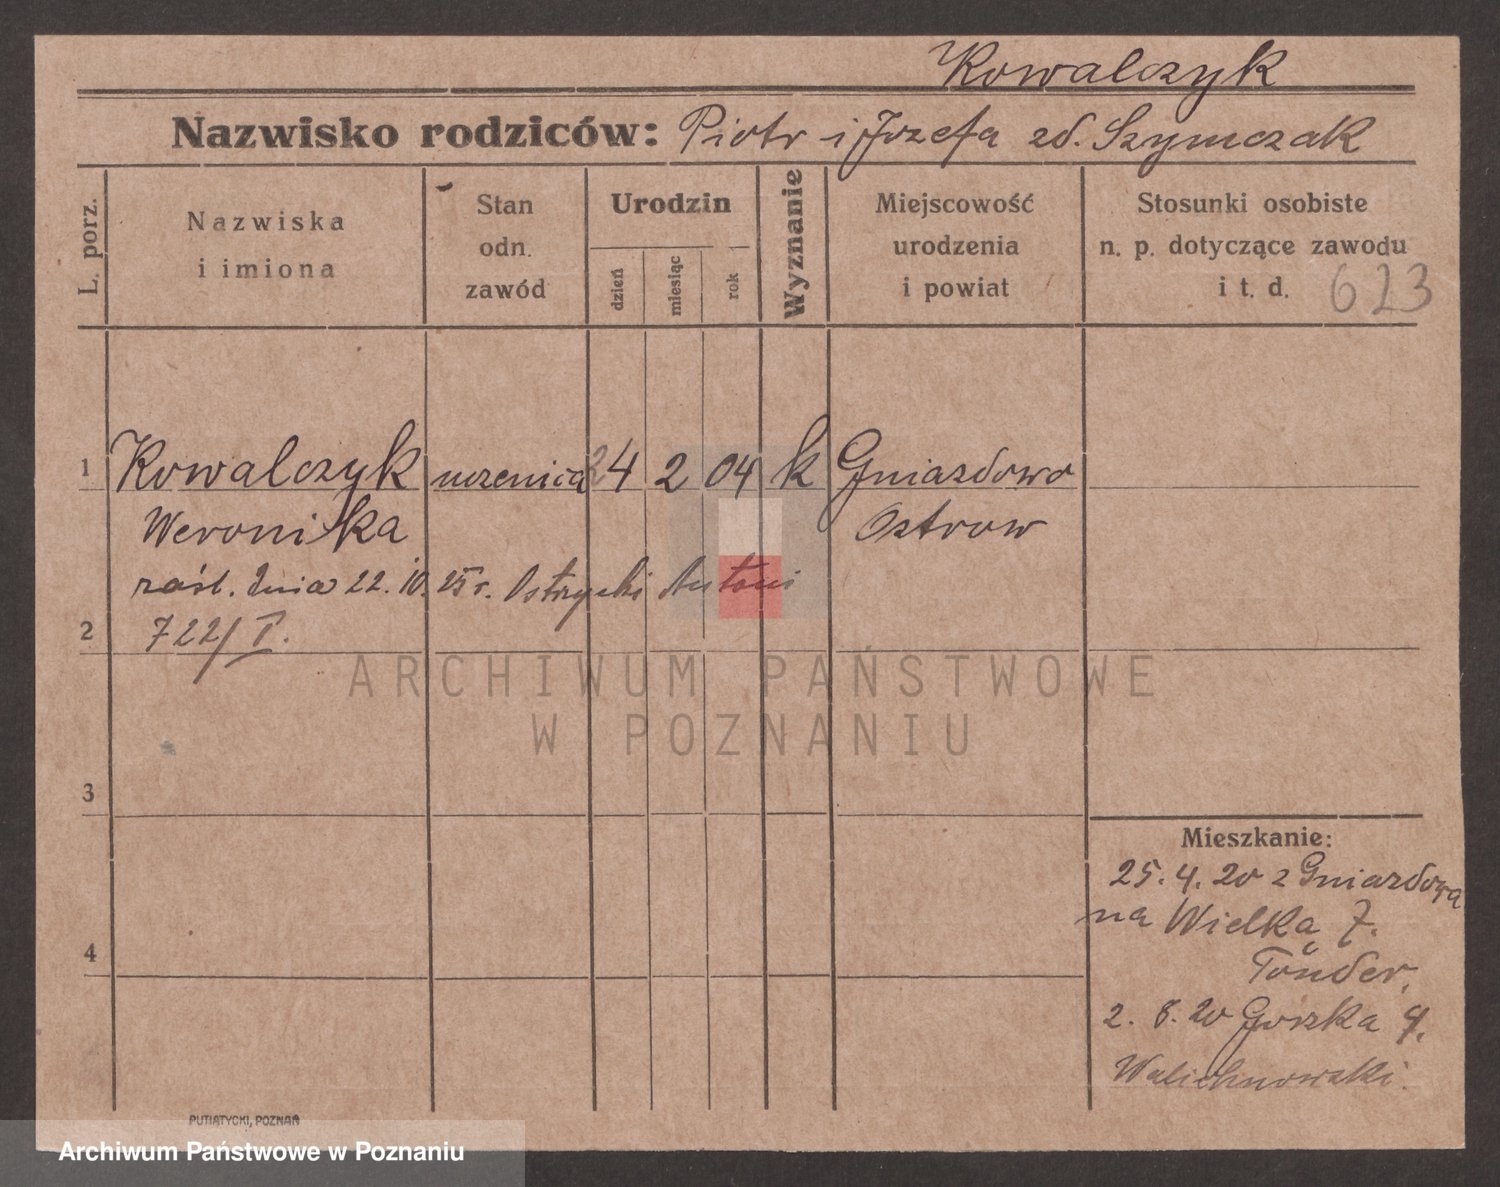 Kowalczyk
Nazwisko rodziców: Piotr i Józefa zd. Szymczak
L. porz.
Nazwiska
i imiona
Stan
odn.
zawód
Urodzin
dzień
miesiąc
rok
Wyznanie
Miejscowość
urodzenia
i powiat
Stosunki osobiste
n. p. dotyczące zawodu
i t. d. 623
1 Kowalczyk uczenica 24 2 04 k Gniazdowo
Weronika Ostrow
zaśl. dnia 22.10.25 r. Antoni
2 722/I.
ARCHIWUM PAŃSTWOWE
W POZNANIU
3
Mieszkanie:
25.4.20 z Gniazdowa
na Wielka 7.
4
Tönder.
2. 8. 20 Gorzka 9.
Walichnowski.
PUTIATYCKI, POZNAŃ
Archiwum Państwowe w Poznaniu